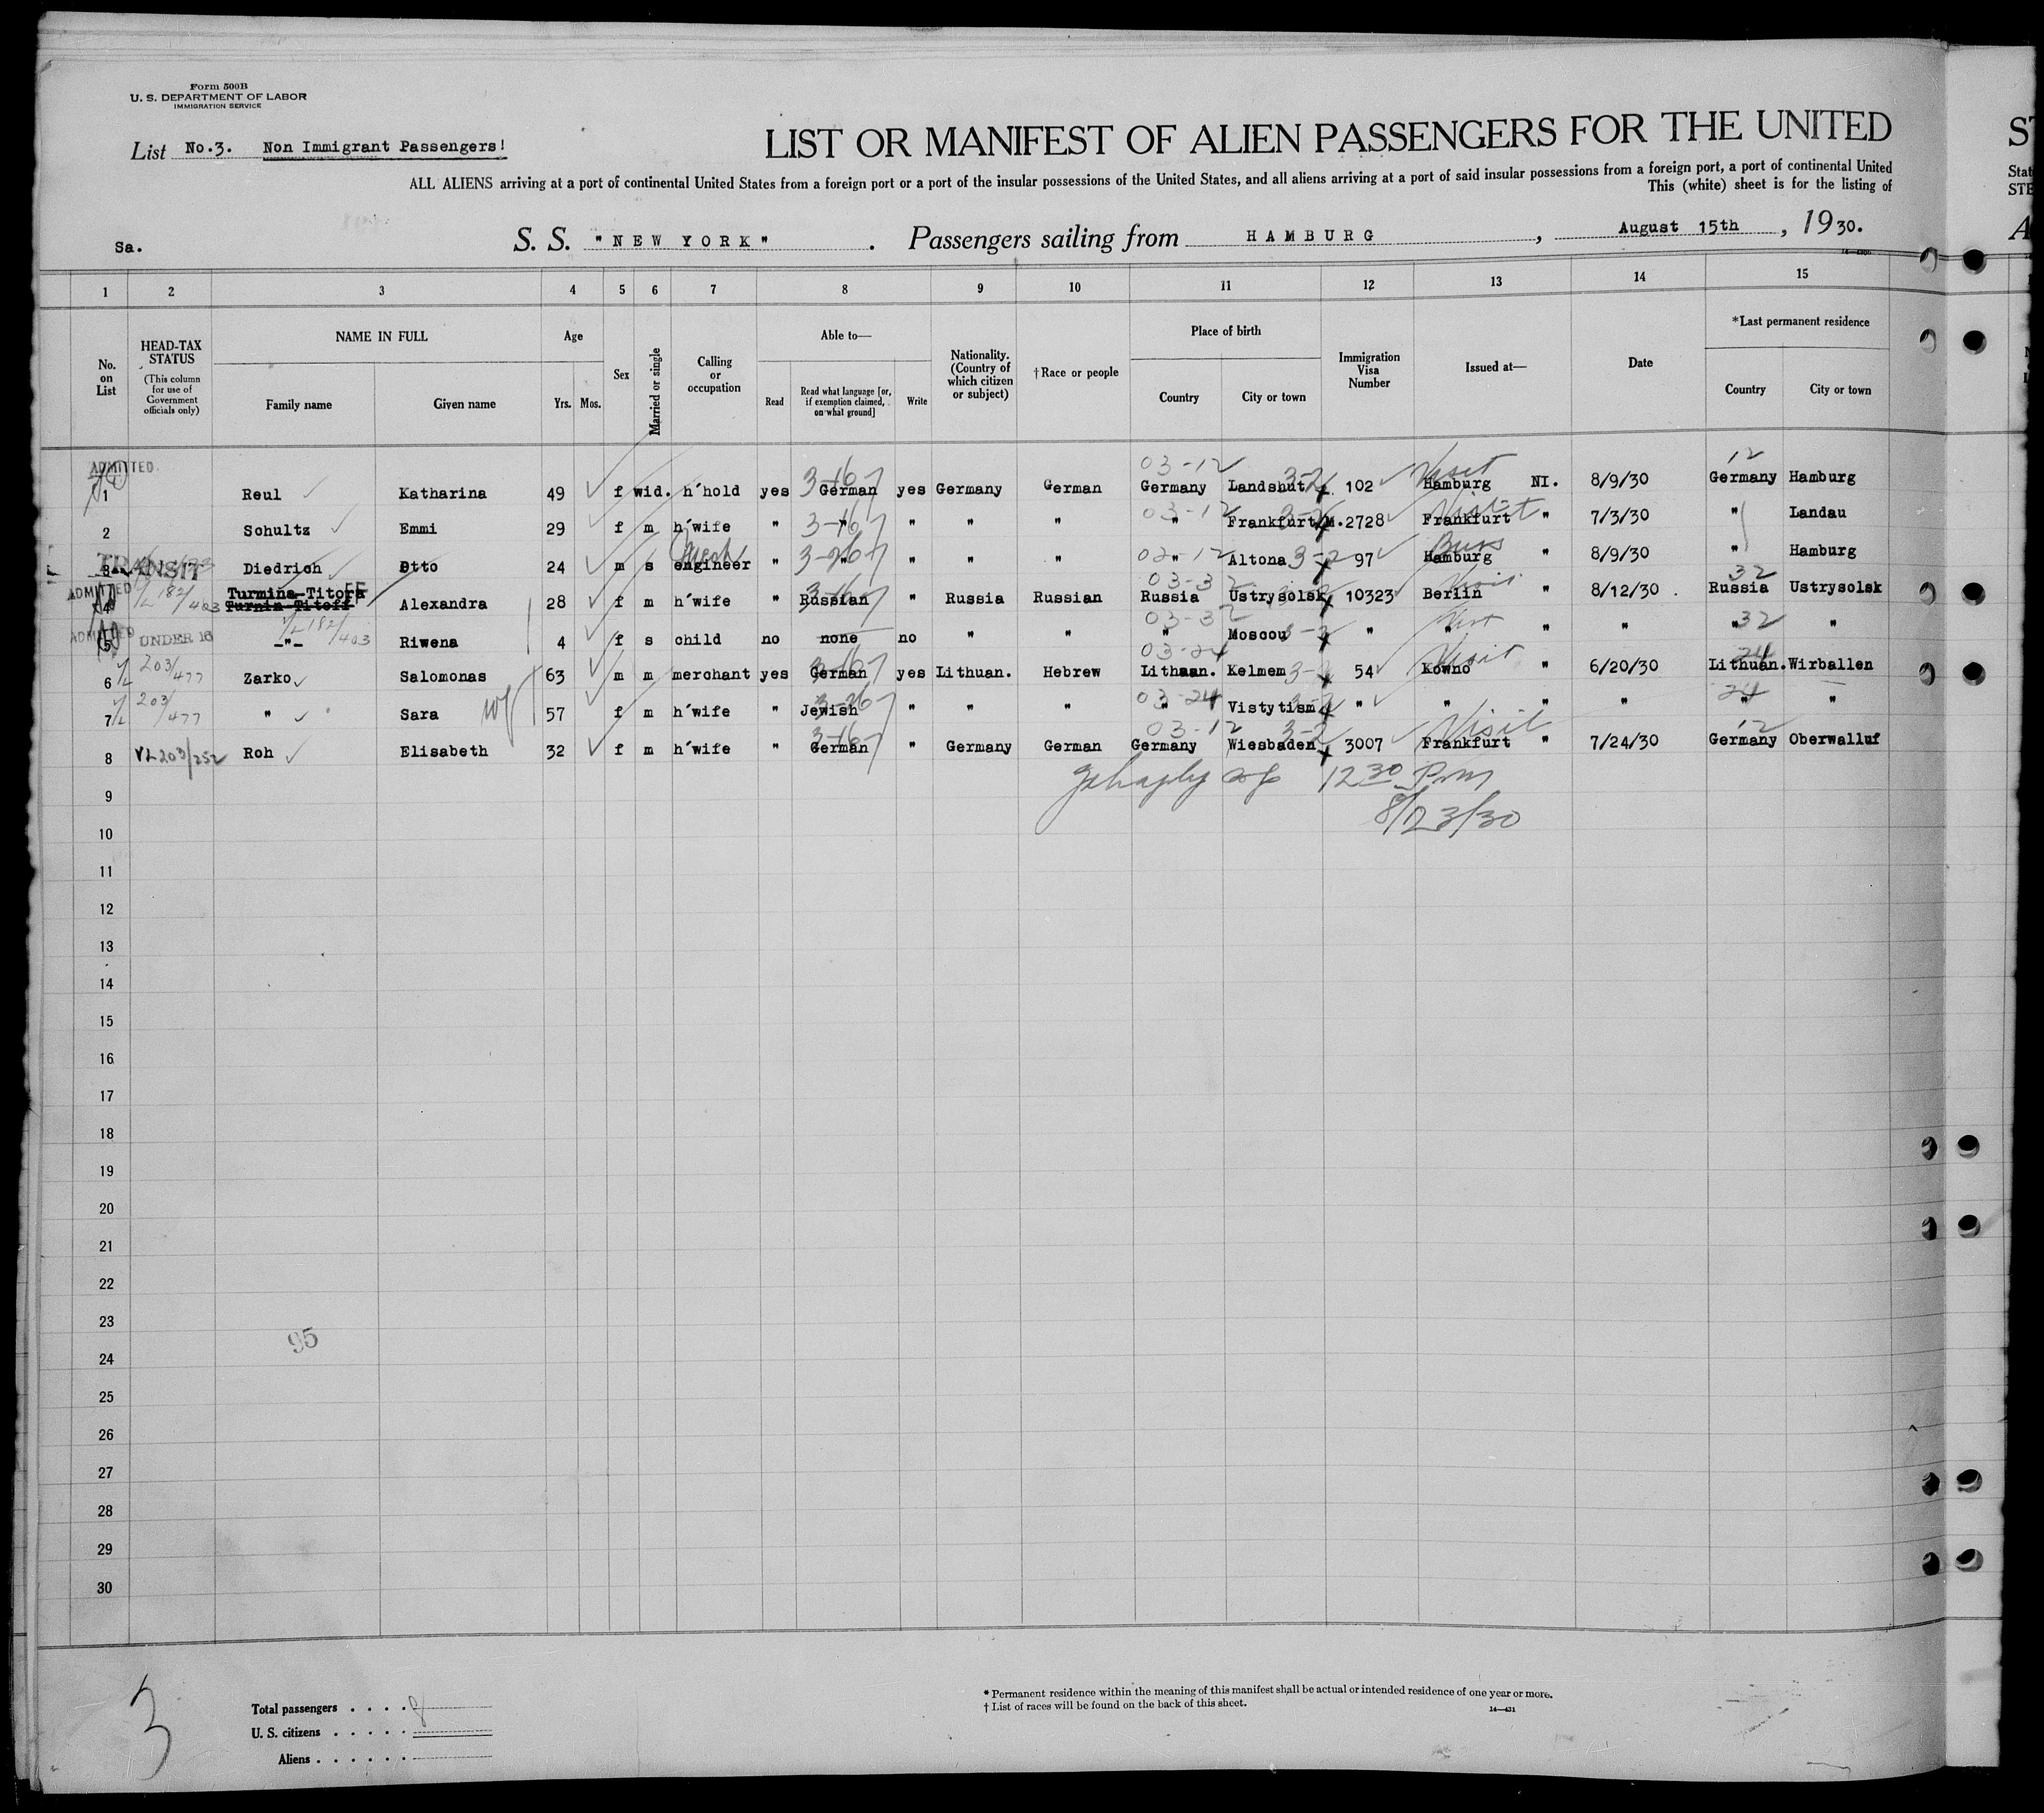 Form 500B
U. S. DEPARTMENT OF LABOR
IMMIGRATION SERVICE
List No.3. Non Immigrant Passengers!
LIST OR MANIFEST OF ALIEN PASSENGERS FOR THE UNITED
ST
ALL ALIENS arriving at a port of continental United States from a foreign port or a port of the insular possessions of the United States, and all aliens arriving at a port of said insular possessions from a foreign port, a port of continental United
Stat
This (white) sheet is for the listing of
STE
Sa. S. S. "NEW YORK". Passengers sailing from HAMBURG, August 15th, 1930.
A
1 2 3 4 5 6 7 8 9 10 11 12 13 14 15
No. on List
HEAD-TAX STATUS (This column for use of Government officials only)
NAME IN FULL Family name Given name
Age Yrs. Mos.
Sex
Married or single
Calling or occupation
Able to— Read Read what language [or, if exemption claimed, on what ground] Write
Nationality. (Country of which citizen or subject)
†Race or people
Place of birth Country City or town
Immigration Visa Number
Issued at—
Date
*Last permanent residence Country City or town
ADMITTED 03-12 3-2 3-16 Visit 12
1 Reul Katharina 49 f wid. h'hold yes German yes Germany German Germany Landshut 102 Hamburg NI. 8/9/30 Germany Hamburg
03-12 3-16 Visit
2 Schultz Emmi 29 f m h'wife " " " " " " Frankfurt/M. 2728 Frankfurt " 7/3/30 " Landau
TRANSIT 3-26 02-12 3-2 Buss
3 Diedrich Otto 24 m s engineer " " " " " Altona 97 Hamburg " 8/9/30 " Hamburg
ADMITTED Turmina-Titoff 182/403 3-16 03-32 Visit 32
4 Turnin-Titoff Alexandra 28 f m h'wife " Russian " Russia Russian Russia Ustrysolsk 10323 Berlin " 8/12/30 Russia Ustrysolsk
ADMITTED UNDER 16 182/403 03-32 32
5 -"- Riwena 4 f s child no none no " " " Moscou " " " " " "
203/477 3-16 03-24 Visit 24
6 Zarko Salomonas 63 m m merchant yes German yes Lithuan. Hebrew Lithaan. Kelmem 54 Kowno " 6/20/30 Lithuan. Wirballen
203/477 3-26 03-24 24
7 " Sara 57 f m h'wife " Jewish " " " " Vistytism " " " " " "
3-16 03-12 3-2 Visit 12
8 VL203/252 Roh Elisabeth 32 f m h'wife " German " Germany German Germany Wiesbaden 3007 Frankfurt " 7/24/30 Germany Oberwalluf
9 12 30 Pm
10 8/23/30
11
12
13
14
15
16
17
18
19
20
21
22
23
95
24
25
26
27
28
29
30
3
Total passengers . . . . 8
U. S. citizens . . . . .
Aliens . . . . . .
* Permanent residence within the meaning of this manifest shall be actual or intended residence of one year or more.
† List of races will be found on the back of this sheet.
14—431